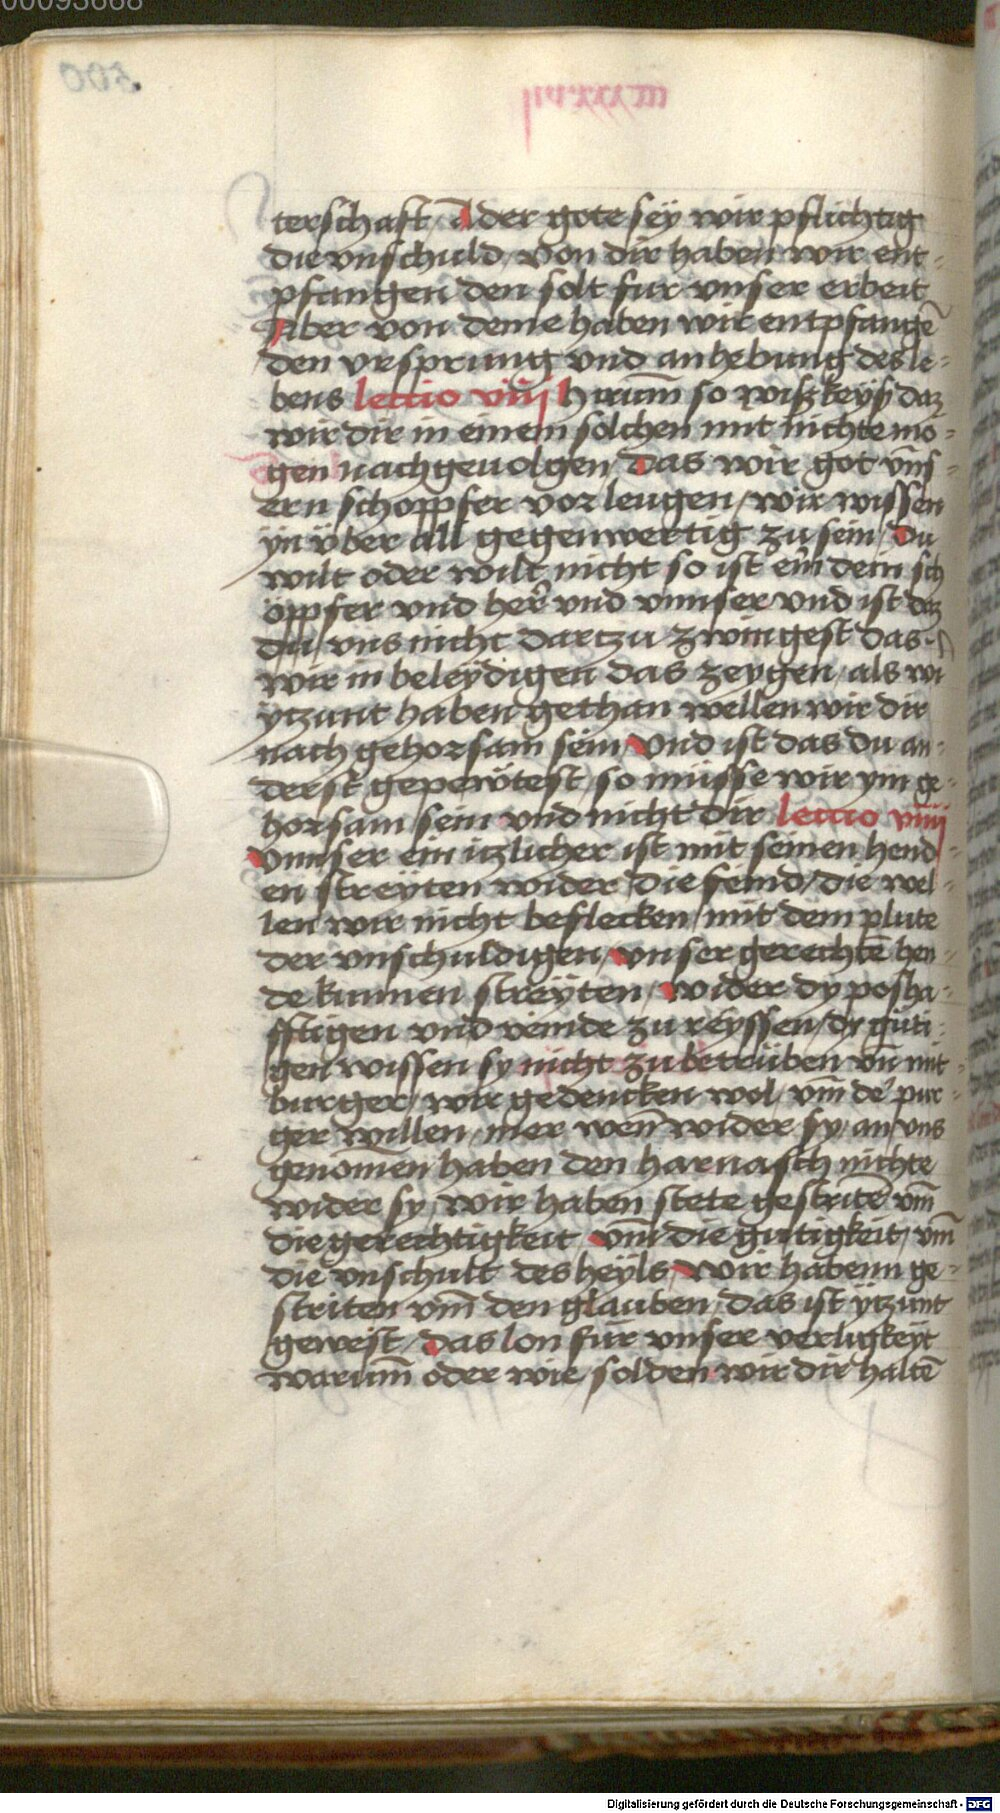 00093668
terschaft / Ader gote sey wir pflichtig
die vnschuld / von dir haben wir ent-
pfangen den solt fur vnser erbeit
Aber von deme haben wir entpfangē
den vrsprung vnd anhebung des le-
bens lectio viij harum̄ so wiß keyß daz
wir dir in einem solchen mit nichte mo-
gen nachgeuolgen Das wir got vns-
ern schoppfer vorleugen / wir wissen
yn vber all gegenwertig zu sein / Du
wilt oder wilt nicht so ist ein dein sch
öppfer vnd her vnd vnnser vnd ist daz
du vns nicht dartzu zwingest das
wir in beleydigen das zeygen / als wi
ytzunt haben gethan wellen wir dir
nach gehorsam sein Vnd ist das du an-
derst gepewtest so müsse wir ym ge-
horsam sein vnd nicht dir lectio viiij
Vnnser ein itzlicher ist mit seinen hend-
en streyten wider die feind / die wel-
len wir nicht beflecken / mit dem plute
der vnschuldigen / vnser gerechtē hen-
de kunnen streyten / wider dy posha-
fftigen vnd veinde zu reyssen / dy guti-
gen wissen sy nicht zu betrüben vn̄ mit-
burger / wir gedencken wol / vm̄ de pur-
ger willen / mer wen̄ wider sy / an vns
genomen haben den harnasch nichte
wider sy / wir haben stete gestritē vm̄
die gerechtigkeit vm̄ die gutigkeit / vm̄
die vnschult des heyls / wir habenn ge-
striten vm̄ den glauben / das ist ytzunt
gewest / das lon fur vnser verligkeyt
warum̄ oder wie solden wir dir haltē
Digitalisierung gefördert durch die Deutsche Forschungsgemeinschaft - DFG